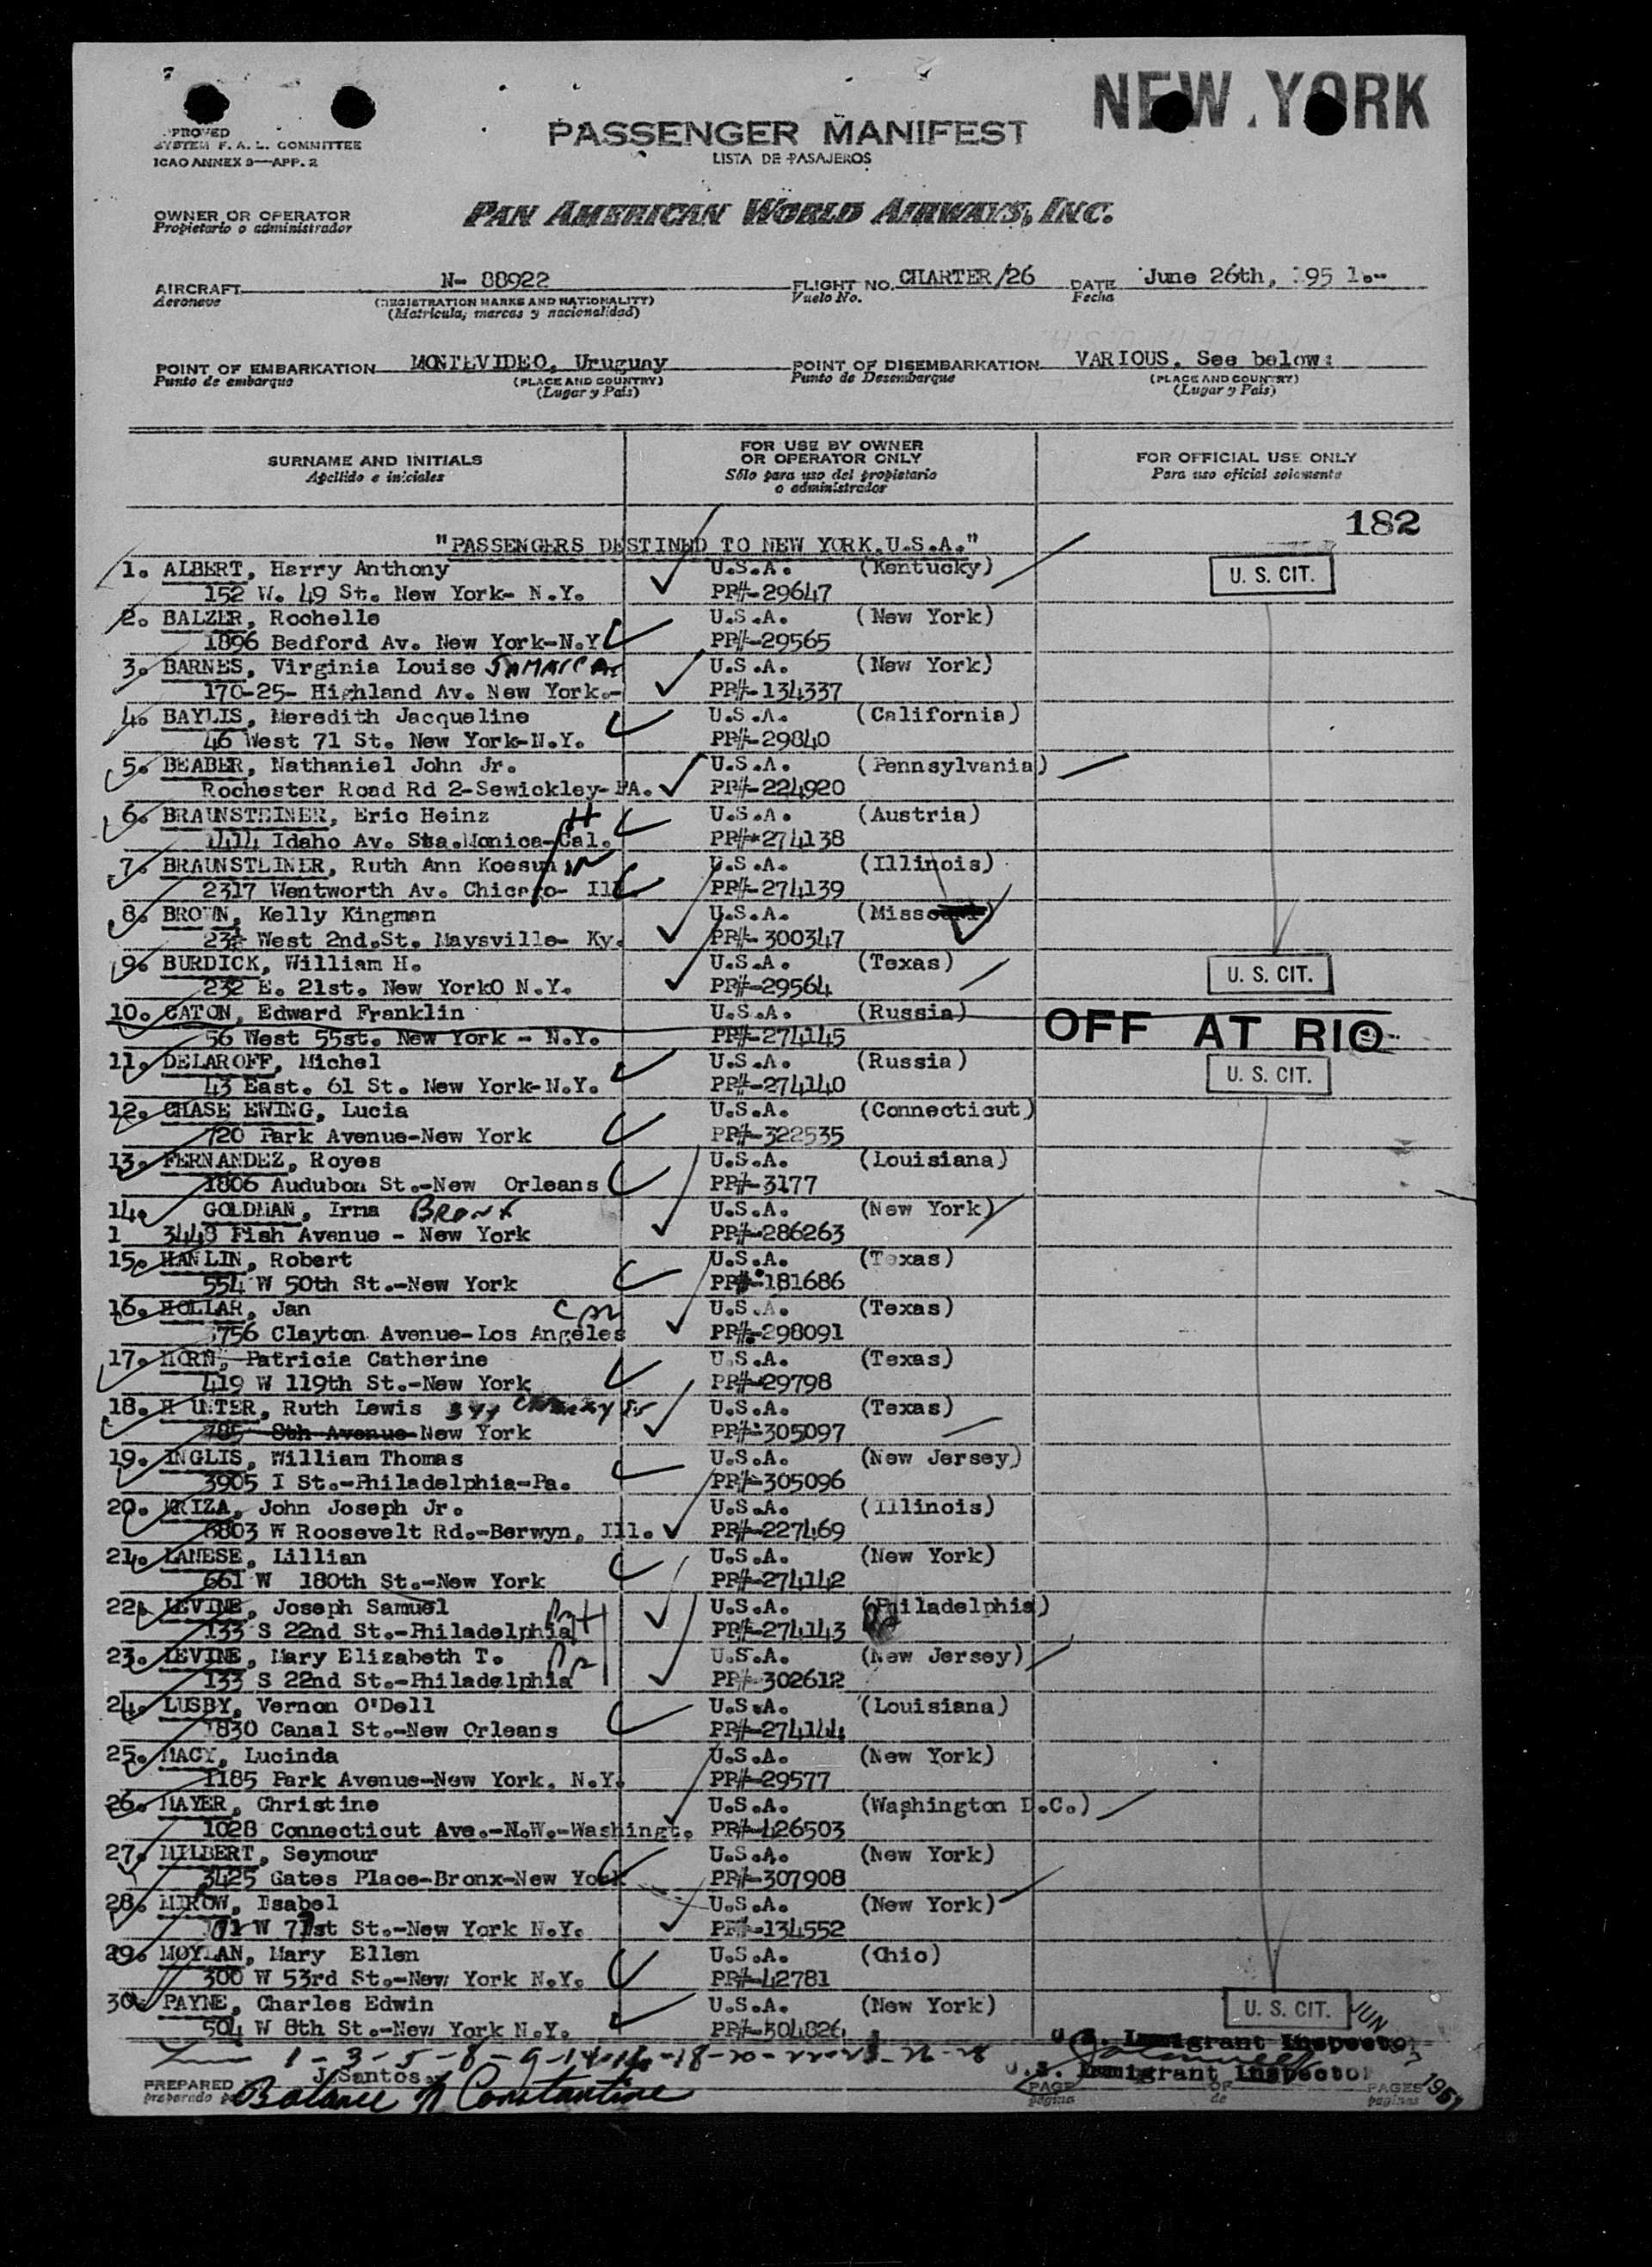 NEW YORK
PASSENGER MANIFEST
LISTA DE PASAJEROS
PROVED
SYSTEM F. A. L. COMMITTEE
ICAO ANNEX 9—APP. 2
PAN AMERICAN WORLD AIRWAYS, INC.
OWNER OR OPERATOR
Propietario o administrador
AIRCRAFT N- 88922 FLIGHT NO. CHARTER/26 DATE June 26th, 1951.--
Aeronave (REGISTRATION MARKS AND NATIONALITY) Vuelo No. Fecha
(Matricula, marcas y nacionalidad)
POINT OF EMBARKATION MONTEVIDEO, Uruguay POINT OF DISEMBARKATION VARIOUS. See below:
Punto de embarque (PLACE AND COUNTRY) Punto de Desembarque (PLACE AND COUNTRY)
(Lugar y País) (Lugar y País)
SURNAME AND INITIALS FOR USE BY OWNER OR OPERATOR ONLY FOR OFFICIAL USE ONLY
Apellido e iniciales Sólo para uso del propietario o administrador Para uso oficial solamente
182
"PASSENGERS DESTINED TO NEW YORK.U.S.A."
1. ALBERT, Harry Anthony U.S.A. (Kentucky) U. S. CIT.
152 W. 49 St. New York- N.Y. PP#-29647
2. BALZER, Rochelle U.S.A. (New York)
1896 Bedford Av. New York-N.Y PP#-29565
3. BARNES, Virginia Louise JAMAICA U.S.A. (New York)
170-25- Highland Av. New York.- PP#-134337
4. BAYLIS, Meredith Jacqueline U.S.A. (California)
46 West 71 St. New York-N.Y. PP#-29840
5. BEABER, Nathaniel John Jr. U.S.A. (Pennsylvania)
Rochester Road Rd 2-Sewickley-PA. PP#-224920
6. BRAUNSTEINER, Eric Heinz H U.S.A. (Austria)
1414 Idaho Av. Sta.Monica-Cal. PP#-274138
7. BRAUNSTEINER, Ruth Ann Koesun W U.S.A. (Illinois)
2317 Wentworth Av. Chicago- Ill. PP#-274139
8. BROWN, Kelly Kingman U.S.A.
23½ West 2nd.St. Maysville- Ky. PP#-300347
9. BURDICK, William H. U.S.A. (Texas) U. S. CIT.
232 E. 21st. New YorkO N.Y. PP#-29564
10. CATON, Edward Franklin U.S.A. (Russia) OFF AT RIO
56 West 55st. New York - N.Y. PP#-274145
11. DELAROFF, Michel U.S.A. (Russia) U. S. CIT.
43 East. 61 St. New York-N.Y. PP#-274140
12. CHASE EWING, Lucia U.S.A. (Connecticut)
720 Park Avenue-New York PP#-322535
13. FERNANDEZ, Royes U.S.A. (Louisiana)
1806 Audubon St.-New Orleans PP#-3177
14. GOLDMAN, Irma BRONX U.S.A. (New York)
1 3448 Fish Avenue - New York PP#-286263
15. HANLIN, Robert U.S.A. (Texas)
554 W 50th St.-New York PP#-181686
16. HOLLAR, Jan U.S.A. (Texas)
3756 Clayton Avenue-Los Angeles PP#-298091
17. HORN, Patricia Catherine U.S.A. (Texas)
419 W 119th St.-New York PP#-29798
18. HUNTER, Ruth Lewis U.S.A. (Texas)
785 8th Avenue-New York PP#-305097
19. INGLIS, William Thomas U.S.A. (New Jersey)
3905 I St.-Philadelphia-Pa. PP#-305096
20. KRIZA, John Joseph Jr. U.S.A. (Illinois)
6803 W Roosevelt Rd.-Berwyn, Ill. PP#-227469
21. LANESE, Lillian U.S.A. (New York)
661 W 180th St.-New York PP#-274142
22. LEVINE, Joseph Samuel U.S.A. (Philadelphia)
133 S 22nd St.-Philadelphia PP#-274143
23. LEVINE, Mary Elizabeth T. U.S.A. (New Jersey)
133 S 22nd St.-Philadelphia PP#-302612
24. LUSBY, Vernon O'Dell U.S.A. (Louisiana)
1830 Canal St.-New Orleans PP#-274144
25. MACY, Lucinda U.S.A. (New York)
1185 Park Avenue-New York. N.Y. PP#-29577
26. MAYER, Christine U.S.A. (Washington D.C.)
1028 Connecticut Ave.-N.W.-Washingt. PP#-426503
27. MILBERT, Seymour U.S.A. (New York)
3425 Gates Place-Bronx-New York PP#-307908
28. MIROW, Isabel U.S.A. (New York)
W 71st St.-New York N.Y. PP#-134552
29. MOYLAN, Mary Ellen U.S.A. (Ohio)
300 W 53rd St.-New York N.Y. PP#-42781
30. PAYNE, Charles Edwin U.S.A. (New York) U. S. CIT.
504 W 8th St.-New York N.Y. PP#-304826
U.S. Immigrant Inspector
J.Santos.
U.S. Immigrant Inspector
PREPARED Balance N Constantine PAGE OF PAGES
preparado página de páginas
JUN 1951